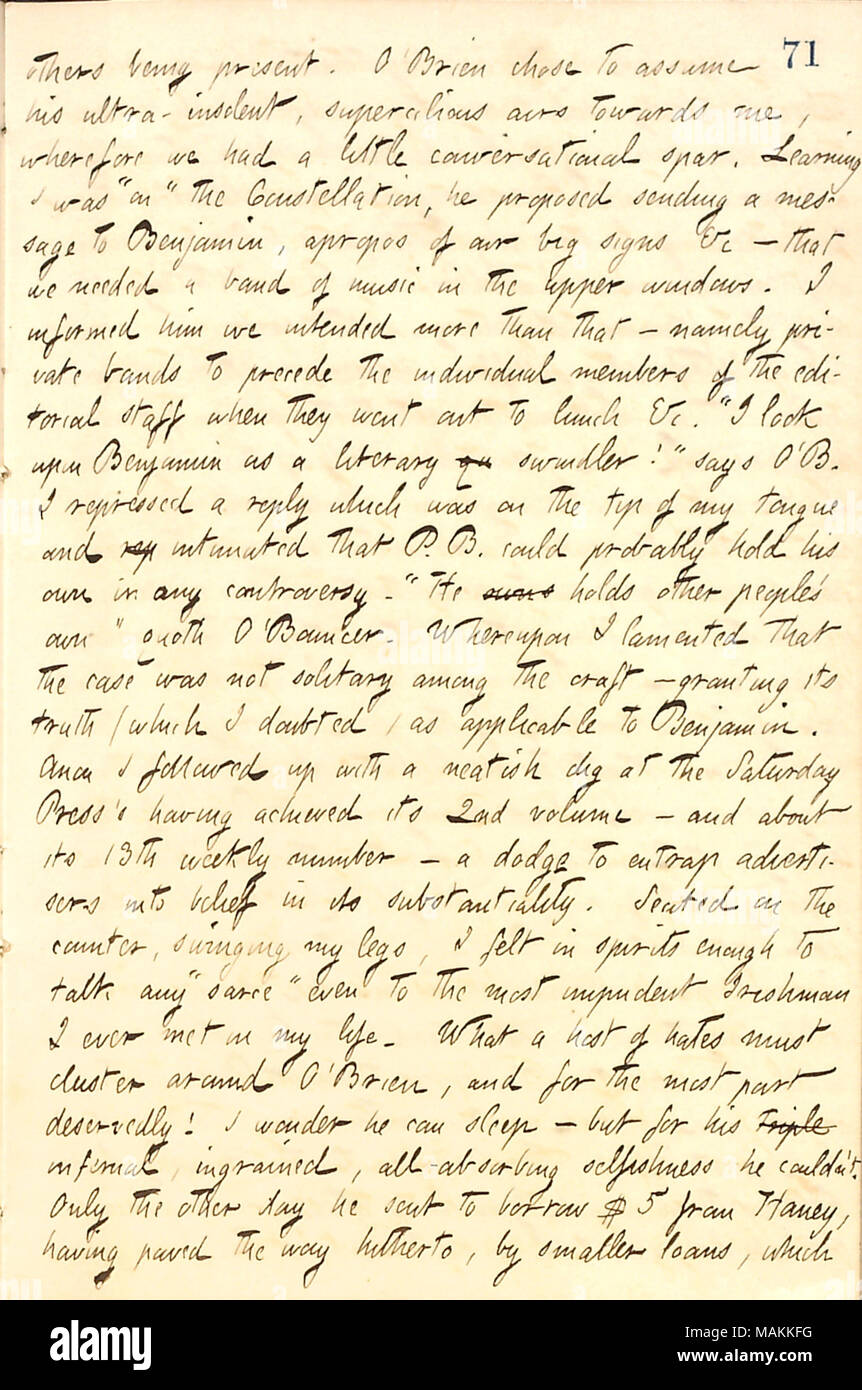 71
others being present. O'Brien chose to assume
his ultra-insolent, supercilious airs towards me,
wherefore we had a little conversational spar. Learning
I was "on" the Constellation, he proposed sending a mes-
sage to Benjamin, apropos of our big signs &c — that
we needed a band of music in the upper windows. I
informed him we intended more than that — namely pri-
vate bands to precede the individual members of the edi-
torial staff when they went out to lunch &c. "I look
upon Benjamin as a literary qu swindler!" says O'B.
I repressed a reply which was on the tip of my tongue
and rep intimated that P. B. could probably hold his
own in any controversy. "He owns holds other people's
own" quoth O'Bouncer. Whereupon I lamented that
the case was not solitary among the craft — granting its
truth (which I doubted) as applicable to Benjamin.
Anon I followed up with a neatish dig at the Saturday
Press's having achieved its 2nd volume — and about
its 13th weekly number — a dodge to entrap adverti-
sers into belief in its substantiality. Seated on the
counter, swinging my legs, I felt in spirits enough to
talk any "sarce" even to the most impudent Irishman
I ever met in my life. What a host of hates must
cluster around O'Brien, and for the most part
deservedly! I wonder he can sleep — but for his triple
infernal, ingrained, all-absorbing selfishness he couldn't.
Only the other day he sent to borrow $5 from Haney,
having paved the way hitherto, by smaller loans, which
alamy
Image ID: MAKKFG
www.alamy.com